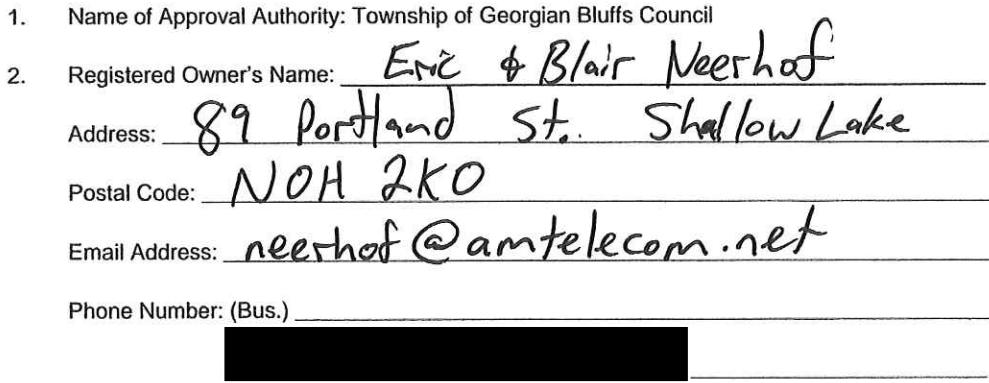 1. Name of Approval Authority: Township of Georgian Bluffs Council
2. Registered Owner's Name: Eric & Blair Neerhof
Address: 89 Portland St. Shallow Lake
Postal Code: N0H 2K0
Email Address: neerhof@amtelecom.net
Phone Number: (Bus.)